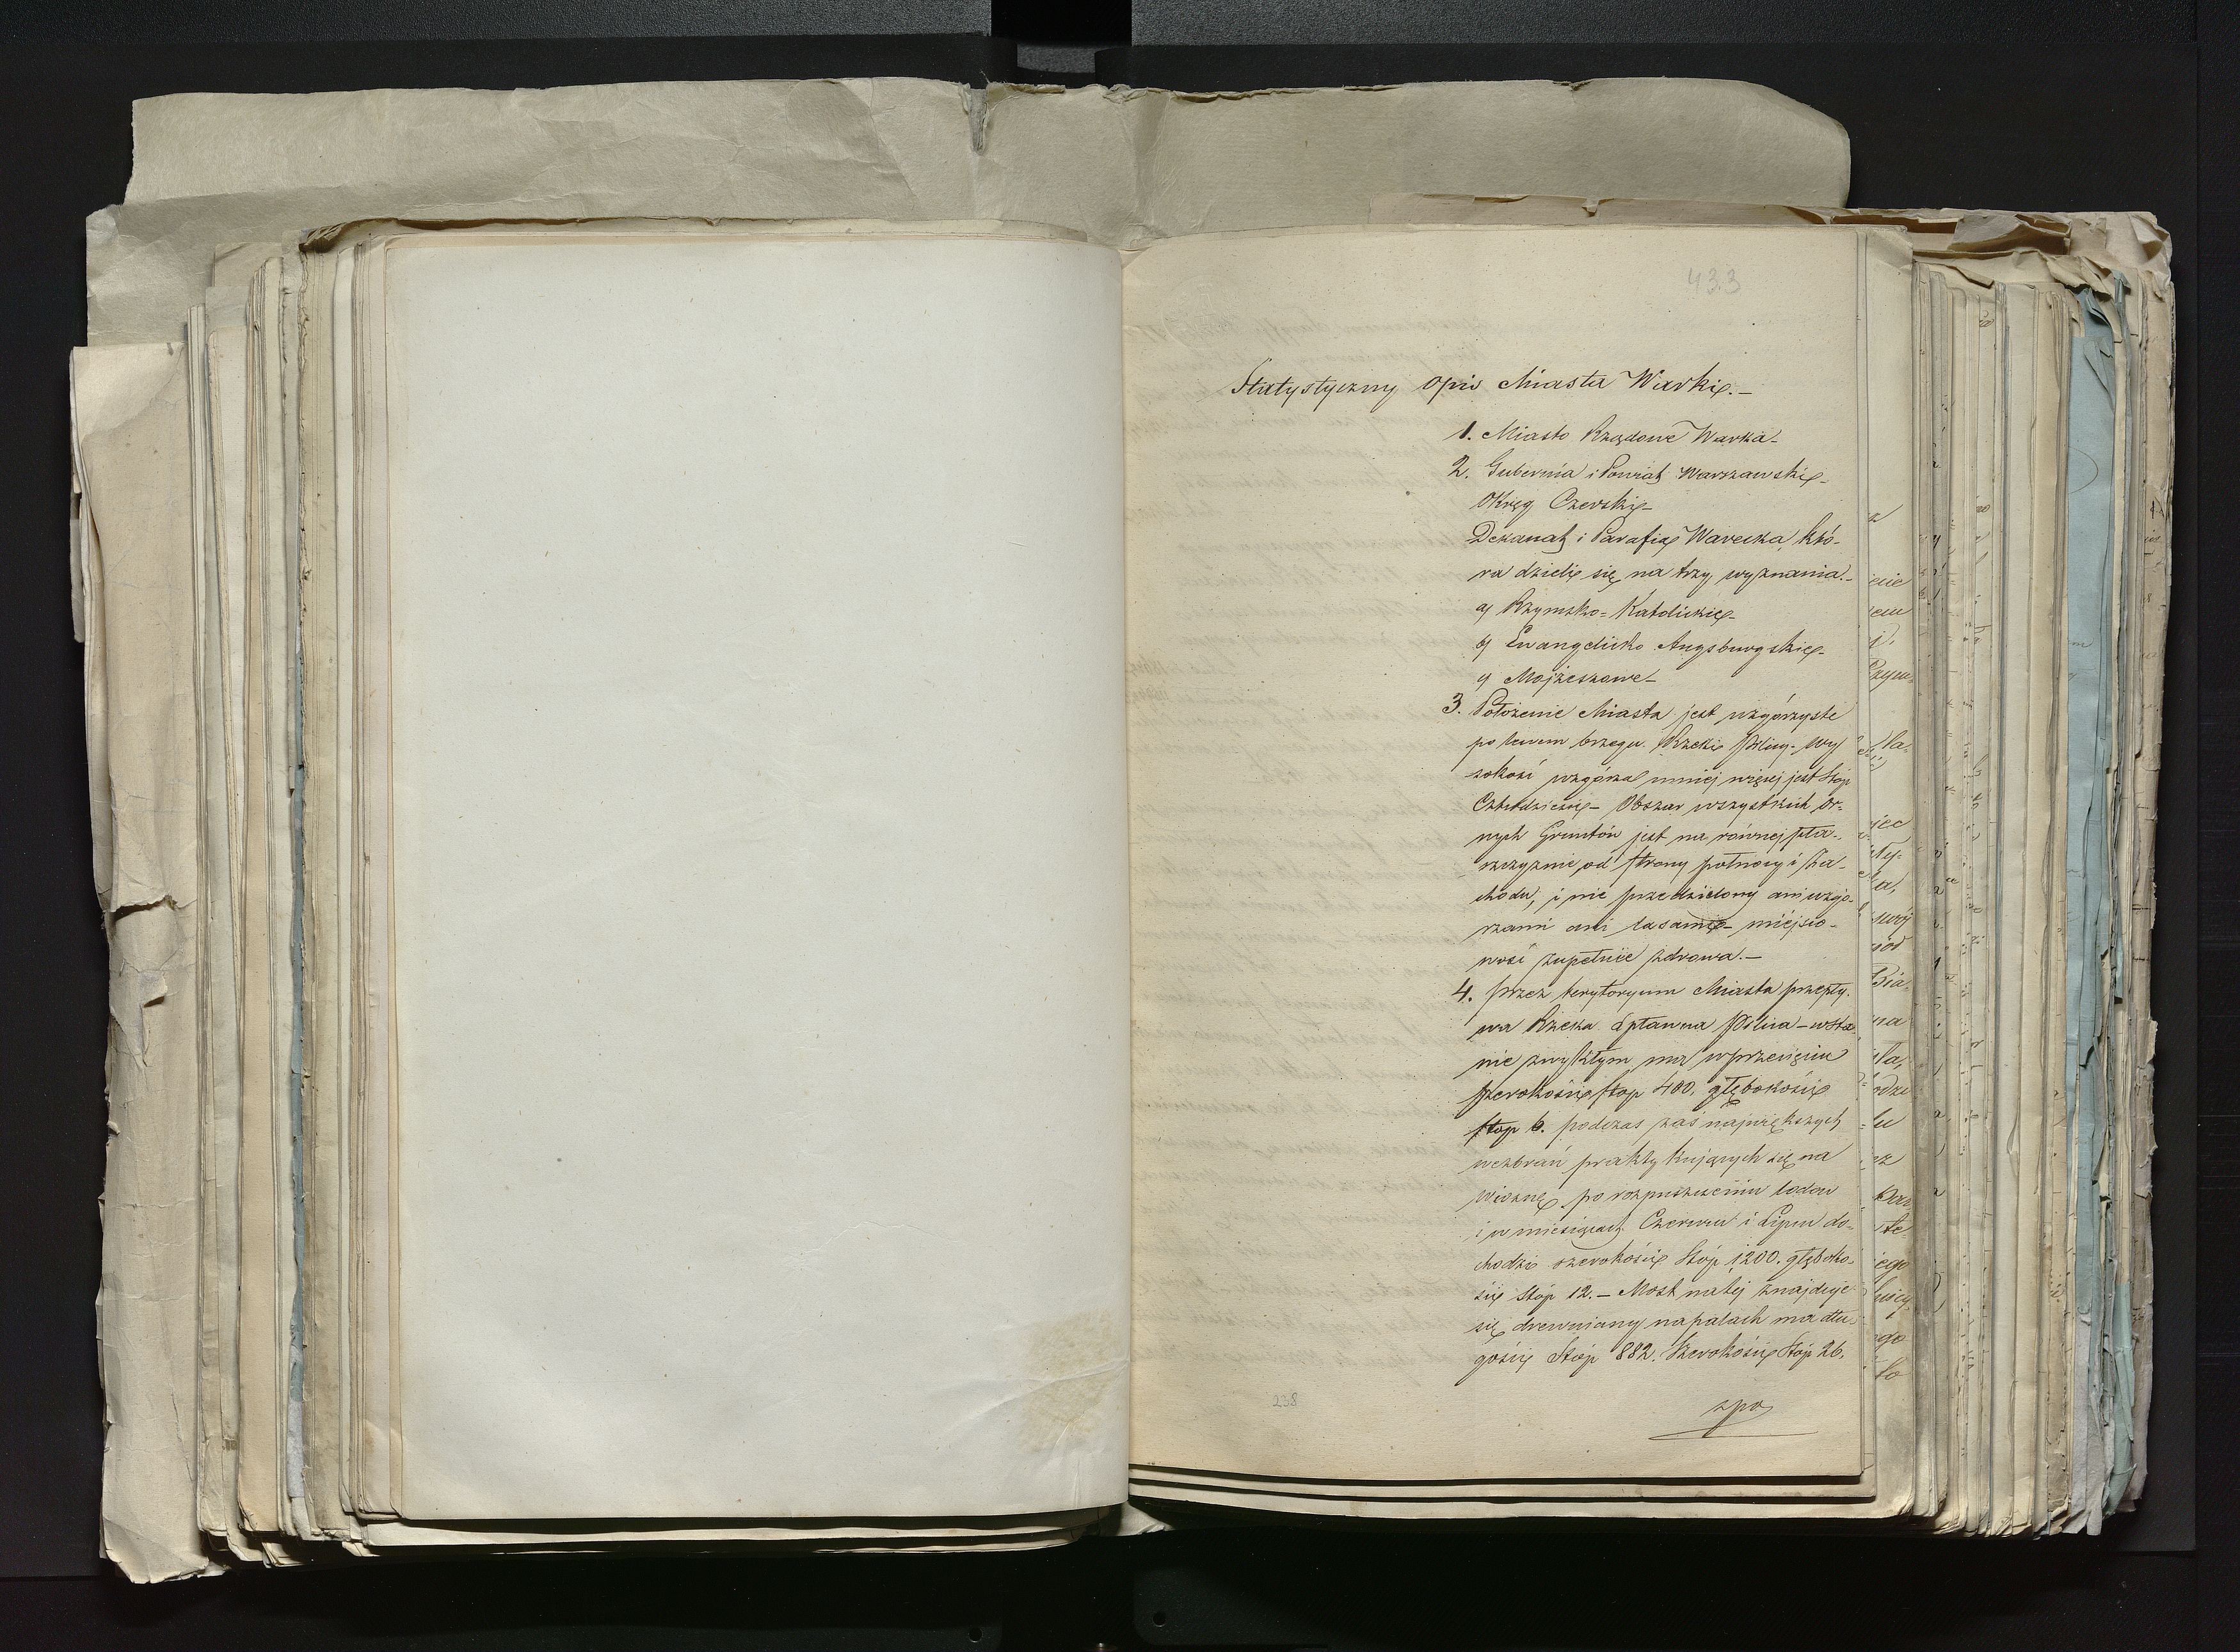 433
Statystyczny opis Miasta Warki.–
1. Miasto Rządowe Warka–
2. Gubernia i Powiat Warszawski–
Okręg Czerski–
Dekanat i Parafia Warecka, któ-
ra dzieli się na trzy wyznania.–
a) Rzymsko-Katolickie–
b) Ewangelicko Augsburgskie–
c) Mojżeszowe–
3. Położenie Miasta jest wzgórzyste
po lewem brzegu Rzeki Pilicy– wy
sokość wzgórza mniej więcej jest Stóp
Czterdzieści– Obszar wszystkich or-
nych Gruntów jest na równej pła-
szczyznie od strony północy i Za-
chodu, i nie przedzielony ani wzgó-
rzami ani lasami– miejsco-
wość zupełnie zdrowa.–
4. Przez terytoryum Miasta przepły-
wa Rzeka spławna Pilica– w sta-
nie zwykłym ma w przecięciu
szerokości stop 400, głębokości
stop 6. podczas zaś największych
wezbrań praktykujących się na
wiosnę po rozpuszczeniu lodów
i w miesiącach Czerwcu i Lipcu do-
chodzi szerokości Stóp 1200. głęboko-
ści Stóp 12.– Most na tej znajduje
się drewniany na palach ma dłu-
gości Stóp 882. Szerokości Stóp 26.
238